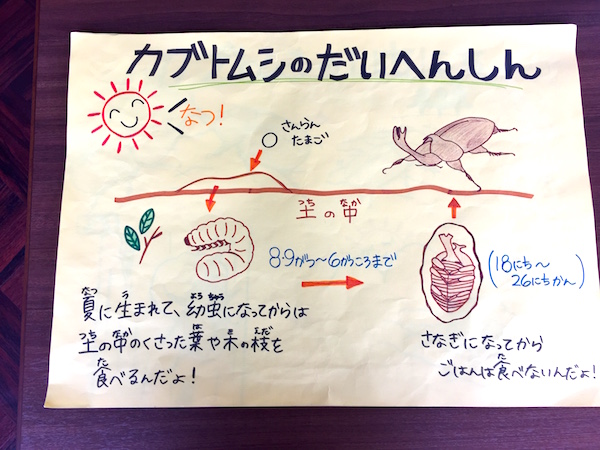 カブトムシのだいへんしん
なつ!
さんらん
たまご
つち なか
土の中
8・9がつ〜6がつころまで
(18にち〜
26にちかん)
なつ う ようちゅう
夏に生まれて、幼虫になってからは
つち なか は き えだ
土の中のくさった葉や木の枝を
た
食べるんだよ!
さなぎになってから
た
ごはんは食べないんだよ!